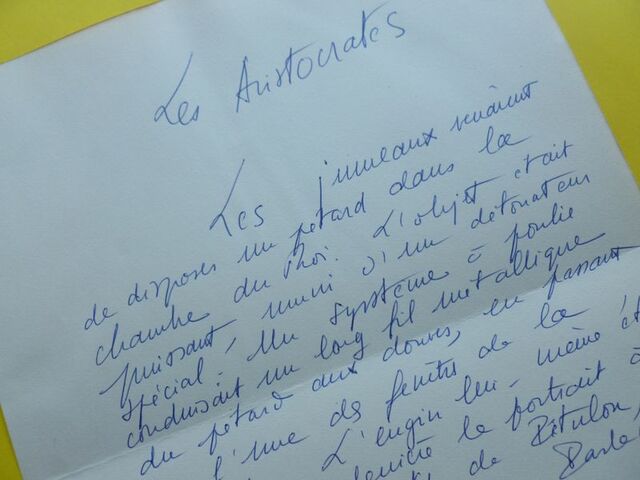 Les Aristocrates
Les jumeaux venaient
de disposer un pétard dans la
chambre du Roi. L'objet était
puissant, muni d'un détonateur
spécial. Un système à poulie
conduisait un long fil métallique
du pétard aux douves, en passant
l'une des fenêtres de la
L'engin lui-même ét
derrière le portrait
de Bitulon,